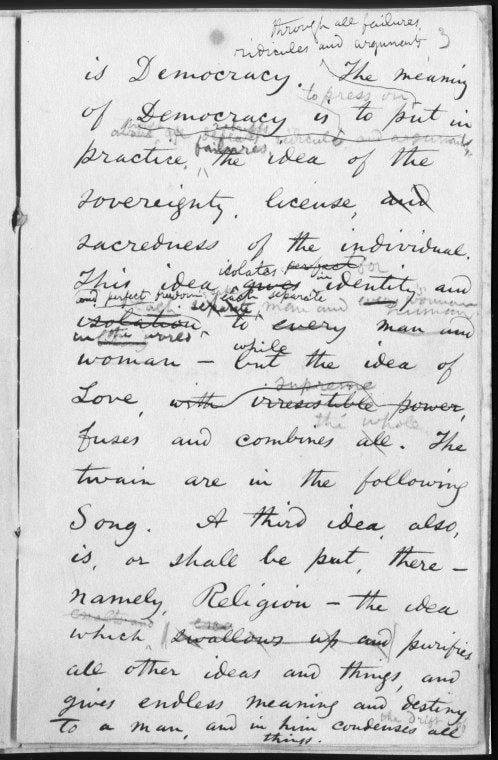 through all failures,
ridicules and arguments 3
is Democracy. The meaning
to press on
of Democracy is to put in
ridicule and arguments,
failures,
practice, the idea of the
sovereignty, license, and
sacredness of the individual.
isolates perfect for
This idea gives identity and
in
and perfect freedom each separate man and woman
isolation, to every man and
in the world while
woman — but the idea of
supreme
Love, with irresistible power,
the whole
fuses and combines all. The
twain are in the following
Song. A third idea, also,
is, or shall be put, there —
namely, Religion — the idea
which, swallows up and purifies
all other ideas and things, and
gives endless meaning and destiny
the drift
to a man, and in him condenses all
things.